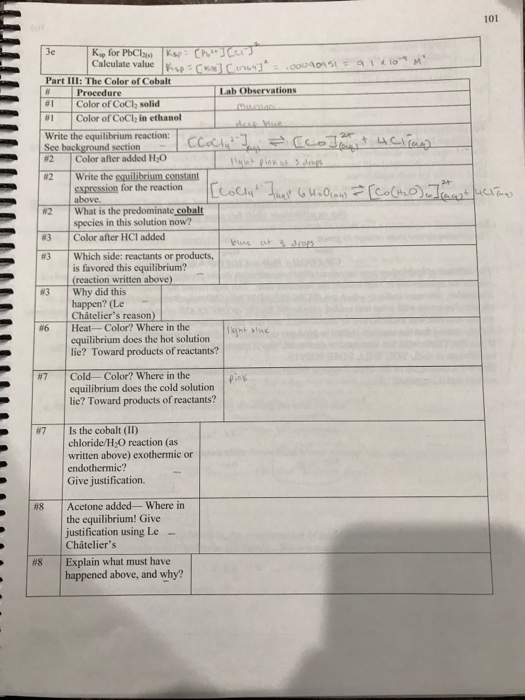 101
3c Ksp for PbCl2(s) Ksp = [Pb2+][Cl-]2
Calculate value Ksp = = .000090951 = 9.1 x 10-4 M3
Part III: The Color of Cobalt
# Procedure Lab Observations
#1 Color of CoCl2 solid
#1 Color of CoCl2 in ethanol deep blue
Write the equilibrium reaction:
See background section [CoCl4 2-](aq) ⇌ [Co]2+(aq) + 4Cl-(aq)
#2 Color after added H2O light pink at 3 drops
#2 Write the equilibrium constant
expression for the reaction
above. [CoCl4 2-](aq) + 6 H2O(aq) ⇌ [Co(H2O)6]2+(aq) + 4Cl-(aq)
#2 What is the predominate cobalt
species in this solution now?
#3 Color after HCl added blue at 3 drops
#3 Which side: reactants or products,
is favored this equilibrium?
(reaction written above)
#3 Why did this
happen? (Le
Châtelier's reason)
#6 Heat— Color? Where in the light blue
equilibrium does the hot solution
lie? Toward products of reactants?
#7 Cold— Color? Where in the pink
equilibrium does the cold solution
lie? Toward products of reactants?
#7 Is the cobalt (II)
chloride/H2O reaction (as
written above) exothermic or
endothermic?
Give justification.
#8 Acetone added— Where in
the equilibrium! Give
justification using Le
Châtelier's
#8 Explain what must have
happened above, and why?